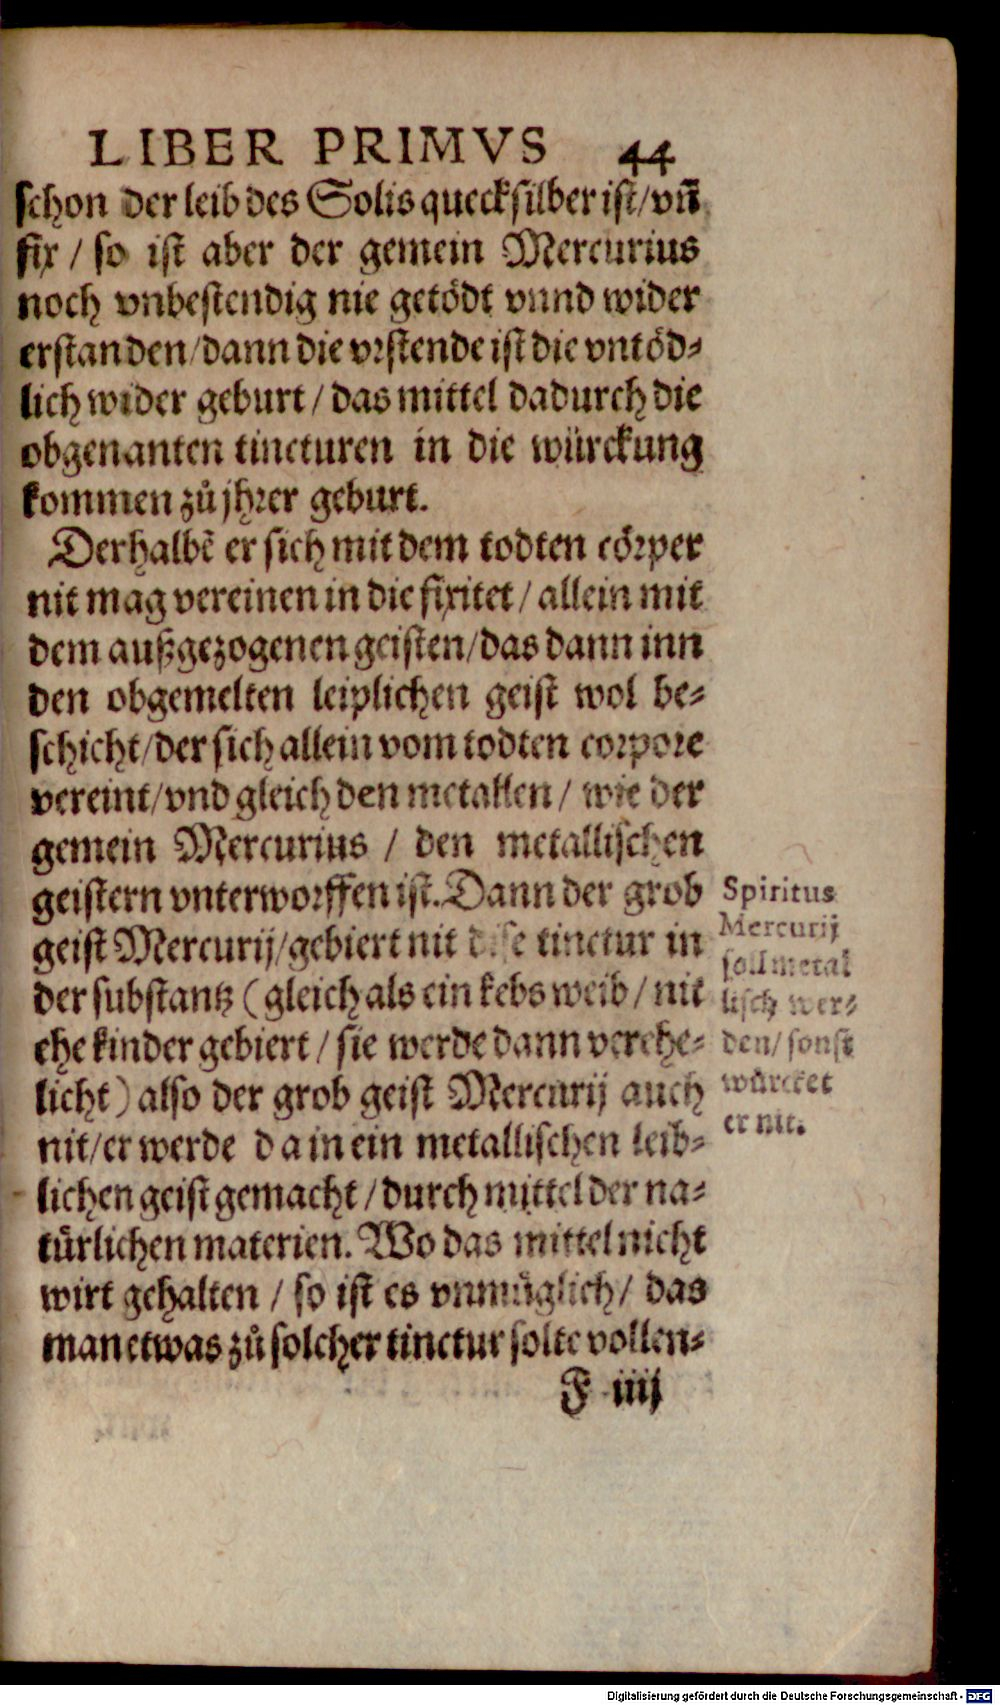 LIBER PRIMVS 44
schon der leib des Solis quecksilber ist/vñ
fix / so ist aber der gemein Mercurius
noch vnbestendig nie getödt vnnd wider
erstanden/dann die vrstende ist die vntöd-
lich wider geburt / das mittel dadurch die
obgenanten tincturen in die würckung
kommen zů jhrer geburt.
Derhalbẽ er sich mit dem todten cörper
nit mag vereinen in die fixitet / allein mit
dem außgezogenen geisten/das dann inn
den obgemelten leiplichen geist wol be-
schicht/der sich allein vom todten corpore
vereint/vnd gleich den metallen / wie der
gemein Mercurius / den metallischen
geistern vnterworffen ist. Dann der grob
geist Mercurij/gebiert nit dise tinctur in
der substantz (gleich als ein kebs weib / nit
ehe kinder gebiert / sie werde dann verehe-
licht) also der grob geist Mercurij auch
nit/er werde da in ein metallischen leib-
lichen geist gemacht / durch mittel der na-
türlichen materien. Wo das mittel nicht
wirt gehalten / so ist es vnmüglich / das
man etwas zů solcher tinctur solte vollen-
F iiij
Spiritus
Mercurij
soll metal
lisch wer-
den/ sonst
würcket
er nit.
Digitalisierung gefördert durch die Deutsche Forschungsgemeinschaft - DFG